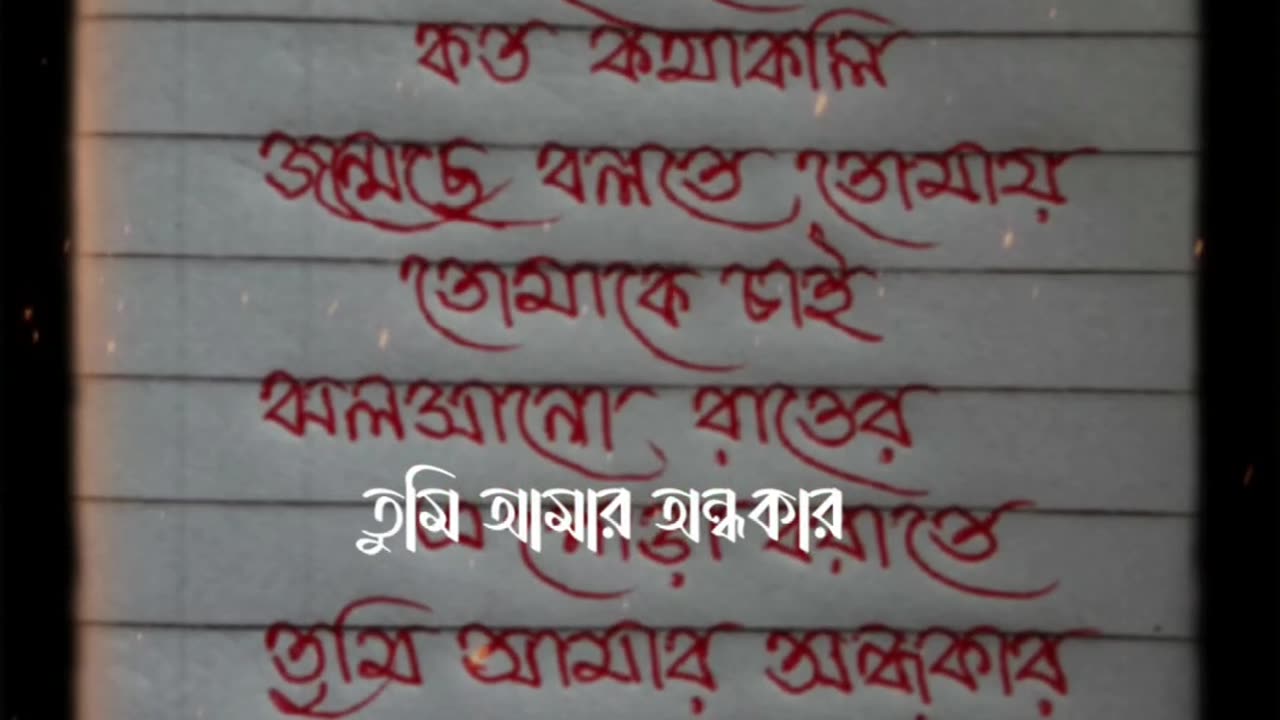 কত কথাকলি
জন্মেছে বলতে তোমায়
তোমাকে চাই
ঝলসানো রাতের
তুমি আমার অন্ধকার
বরাতে
তুমি আমার অন্ধকার